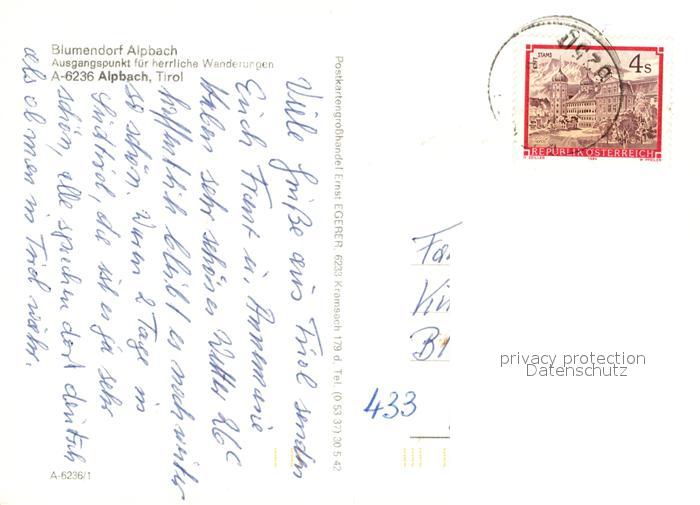 Blumendorf Alpbach
Ausgangspunkt für herrliche Wanderungen
A-6236 Alpbach, Tirol
Viele Grüße aus Tirol senden
Euch Franz u. Annemarie
Haben sehr schönes Wetter 26°C
hoffentlich bleibt es noch weiter
so schön. Waren 2 Tage in
Südtirol, da ist es ja sehr
schön, alle sprechen dort deutsch
als ob man in Tirol wäre.
A-6236/1
Postkartengroßhandel Ernst EGERER, 6233 Kramsach 179 d. Tel. (0 53 37) 30 5 42
STIFT STAMS
4 S
REPUBLIK ÖSTERREICH
1984
Fa
B
433
privacy protection
Datenschutz